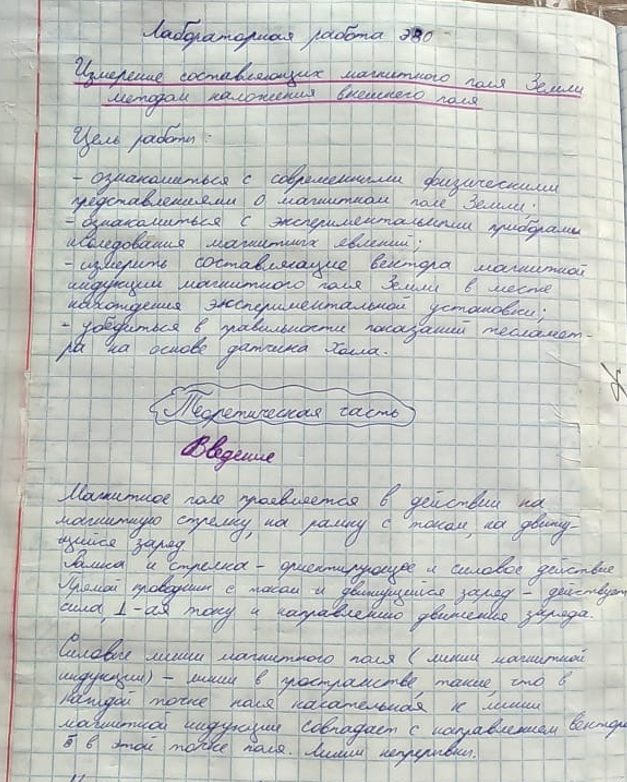 Лабораторная работа Э80
Измерение составляющих магнитного поля Земли
методом наложения внешнего поля
Цель работы:
- ознакомиться с современными физическими
представлениями о магнитном поле Земли;
- ознакомиться с экспериментальными приборами
исследования магнитных явлений;
- измерить составляющие вектора магнитной
индукции магнитного поля Земли в месте
нахождения экспериментальной установки;
- убедиться в правильности показаний тесламет-
ра на основе датчика Холла.
Теоретическая часть
Введение
Магнитное поле проявляется в действии на
магнитную стрелку, на рамку с током, на движу-
щийся заряд.
Рамка и стрелка - ориентирующее и силовое действие
Прямой проводник с током и движущийся заряд - действует
сила, ⊥-ая току и направлению движения заряда.
Силовые линии магнитного поля (линии магнитной
индукции) - линии в пространстве, такие, что в
каждой точке поля касательная к линии
магнитной индукции совпадает с направлением вектора
B в этой точке поля. Линии непрерывны.